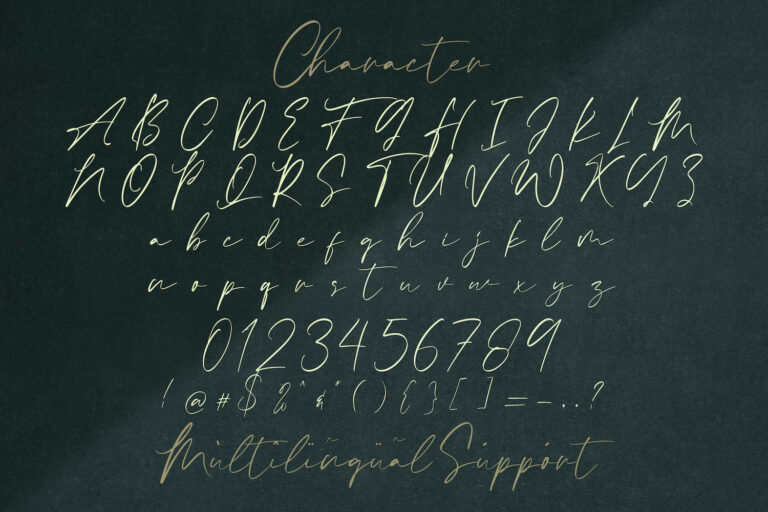 Character
A B C D E F G H I J K L M
N O P Q R S T U V W X Y Z
a b c d e f g h i j k l m
n o p q r s t u v w x y z
0 1 2 3 4 5 6 7 8 9
! @ # $ % ^ & * ( ) { } [ ] = - . . ?
Mùltïlïñgüãl Sùppört